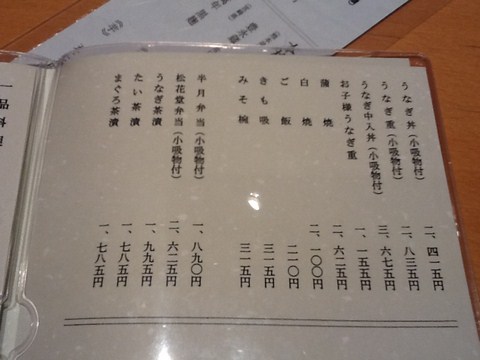 うなぎ丼(小吸物付) 二、四一五円
うなぎ重(小吸物付) 二、八三五円
うなぎ中入丼(小吸物付) 三、六七五円
お子様うなぎ重 一、一五五円
蒲焼 二、六二五円
白焼 二、一〇〇円
ご飯 二一〇円
きも吸 三一五円
みそ椀 三一五円
半月弁当(小吸物付) 一、八九〇円
松花堂弁当(小吸物付) 二、六二五円
うなぎ茶漬 一、九九五円
たい茶漬 一、七八五円
まぐろ茶漬 一、七八五円
一品料理